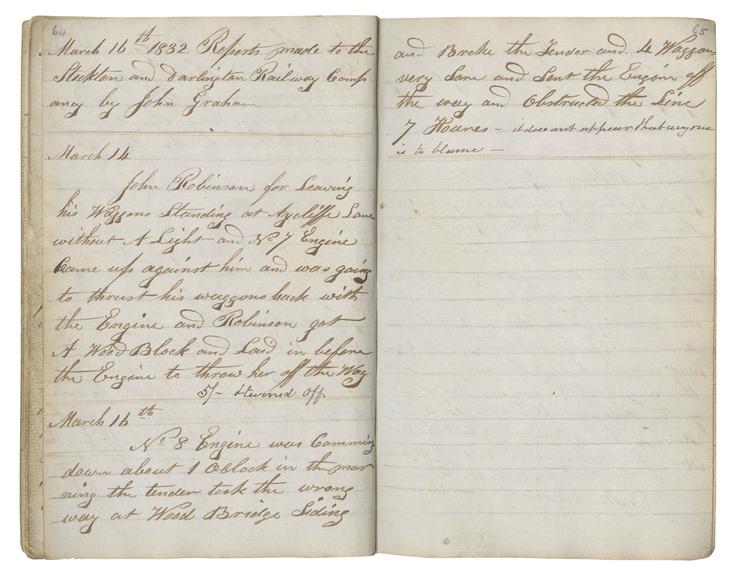 64
March 16th 1832 Reports made to the
Stockton and Darlington Railway Comp
any by John Graham
March 14
John Robinson for Leaving
his Waggons Standing at Aycliffe Lane
without A Light and No 7 Engine
Came up against him and was going
to thrust his waggons back with
the Engine and Robinson got
A Wood Block and Laid in before
the Engine to throw her off the Way
5/- & turned off
March 16th
No 8 Engine was Comming
down about 1 OClock in the mor
ning the tender took the wrong
way at Wood Bridge Siding
65
and Broke the Tender and 4 Waggon
very Sare and Sent the Engine off
the way and Obstructed the Line
7 Houres - it does not appear that any one
is to blame -